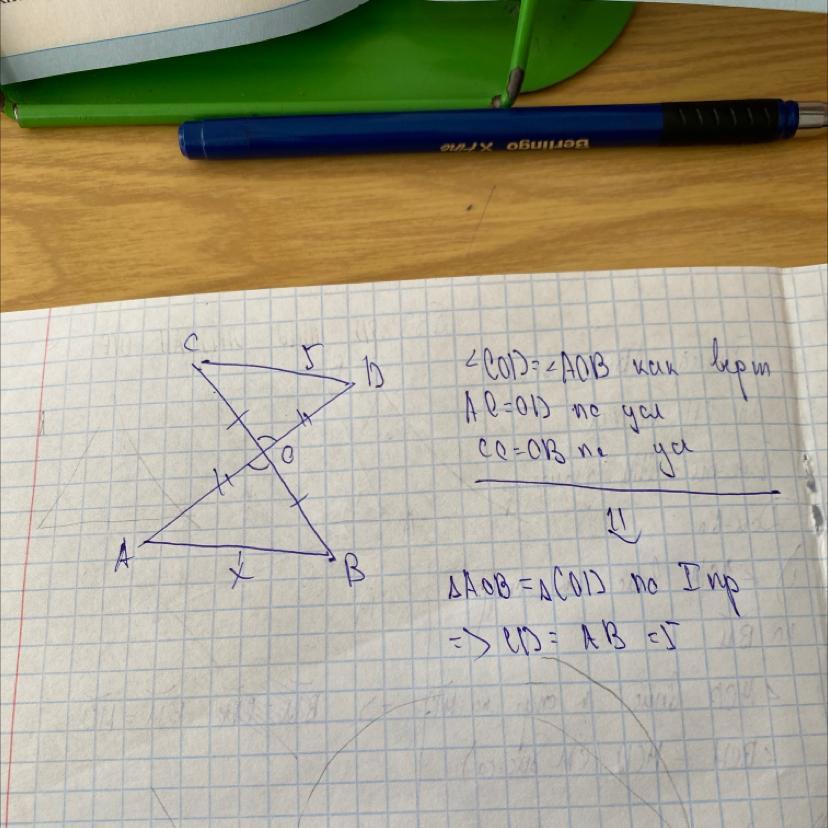 Berlingo xFine
C
5
D
O
A
x
B
∠COD = ∠AOB как верт
AO = OD по усл
CO = OB по ус
⇓
ΔAOB = ΔCOD по I пр
=> CD = AB = 5